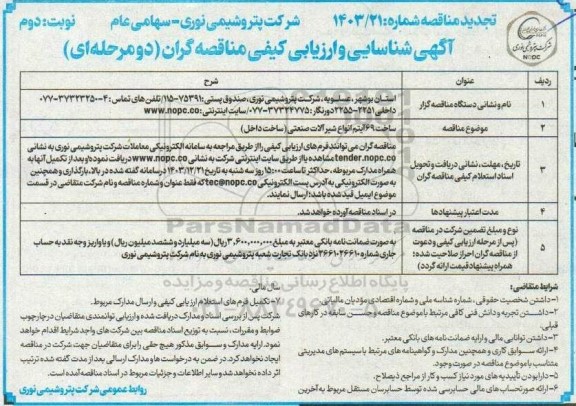 تجدید مناقصه شماره: ۱۴۰۳/۲۱ شرکت پتروشیمی نوری-سهامی عام نوبت: دوم
شرکت پتروشیمی نوری
NOPC
آگهی شناسایی و ارزیابی کیفی مناقصه گران (دو مرحله‌ای)
ردیف عنوان شرح
۱ نام و نشانی دستگاه مناقصه گزار
استان بوشهر، عسلویه، شرکت پتروشیمی نوری، صندوق پستی: ۷۵۳۹۱-۱۱۵/تلفن‌های تماس: ۴-۳۷۳۲۳۲۵۰-۰۷۷
داخلی ۲۲۵۱-۲۲۵۵ دورنگار: ۳۷۳۲۴۷۷۵-۰۷۷/سایت اینترنتی: www.nopc.co
۲ موضوع مناقصه ساخت ۶۹ آیتم انواع شیرآلات صنعتی (ساخت داخل)
۳ تاریخ، مهلت، نشانی دریافت و تحویل اسناد استعلام کیفی مناقصه گران
مناقصه گران می توانند فرم های ارزیابی کیفی را از طریق مراجعه به سامانه الکترونیکی معاملات شرکت پتروشیمی نوری به نشانی
tender.nopc.co مشاهده یا از طریق سایت اینترنتی شرکت به نشانی www.nopc.co دریافت نموده و بعد از تکمیل آنها به
همراه مدارک مربوطه، حداکثر تا ساعت ۱۵:۰۰ روز سه شنبه به تاریخ ۱۴۰۳/۱۲/۲۱ در سامانه گفته شده در بالا، بارگذاری و همچنین
به صورت الکترونیکی به آدرس پست الکترونیکی tec@nopc.co که فقط عنوان و شماره مناقصه و نام شرکت متقاضی در قسمت
موضوع ایمیل قید شده باشد؛ ارسال نمایند.
۴ مدت اعتبار پیشنهادها در اسناد مناقصه آورده خواهد شد.
۵ نوع و مبلغ تضمین شرکت در مناقصه (پس از مرحله ارزیابی کیفی و دعوت از مناقصه گران احراز صلاحیت شده؛ همراه پیشنهاد قیمت ارائه گردد)
به صورت ضمانت نامه بانکی معتبر به مبلغ ۳,۶۰۰,۰۰۰,۰۰۰ ریال (سه میلیارد و ششصد میلیون ریال) و یا واریز وجه نقد به حساب
جاری شماره ۳۶۶۱۰۲۶۶۱۰ نزد بانک تجارت شعبه پتروشیمی نوری به نام شرکت پتروشیمی نوری
شرایط متقاضی:
۱-داشتن شخصیت حقوقی، شماره شناسه ملی و شماره اقتصادی مؤدیان مالیاتی.
۲-داشتن تجربه و دانش فنی کافی مرتبط با موضوع مناقصه و حسن سابقه در کارهای
قبلی.
۳-داشتن توانایی مالی و ارایه ضمانت نامه های بانکی معتبر.
۴-ارائه سوابق کاری و همچنین مدارک و گواهینامه های مرتبط با سیستم های مدیریتی
متناسب با موضوع در صورت وجود.
۵-دارا بودن تأییدیه های مورد نیاز کسب و کار از مراجع ذیصلاح.
۶-ارائه صورتحساب های مالی حسابرسی شده توسط حسابرسان مستقل مربوط به آخرین
سال مالی.
۷-تکمیل فرم های استعلام ارزیابی کیفی و ارسال مدارک مربوط.
شرکت پس از بررسی اسناد و مدارک دریافت شده و ارزیابی توانمندی متقاضیان در چارچوب
ضوابط و مقررات، نسبت به توزیع اسناد مناقصه بین شرکت های واجد شرایط اقدام خواهد
نمود. ارایه مدارک و سوابق مذکور هیچ حقی را برای متقاضیان جهت شرکت در مناقصه
ایجاد نخواهد کرد. در ضمن به درخواست ها و مدارک ارسالی بعد از مدت گفته شده ترتیب
اثر داده نخواهد شد و سایر اطلاعات و جزئیات مربوط در اسناد مناقصه آمده است.
روابط عمومی شرکت پتروشیمی نوری